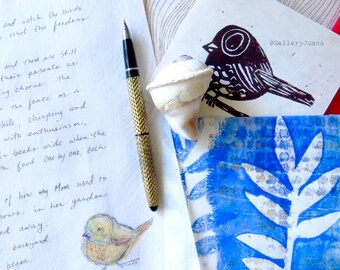 and watch the birds
visit the feeders.
and there are still
their parents as
The
on the fence or a
while, chirping and
with enthusiasm,
beaks wide when the
food. One by one, each
of how my Mom used to
in her garden
away.
backyard
began.
@GalleryJuana